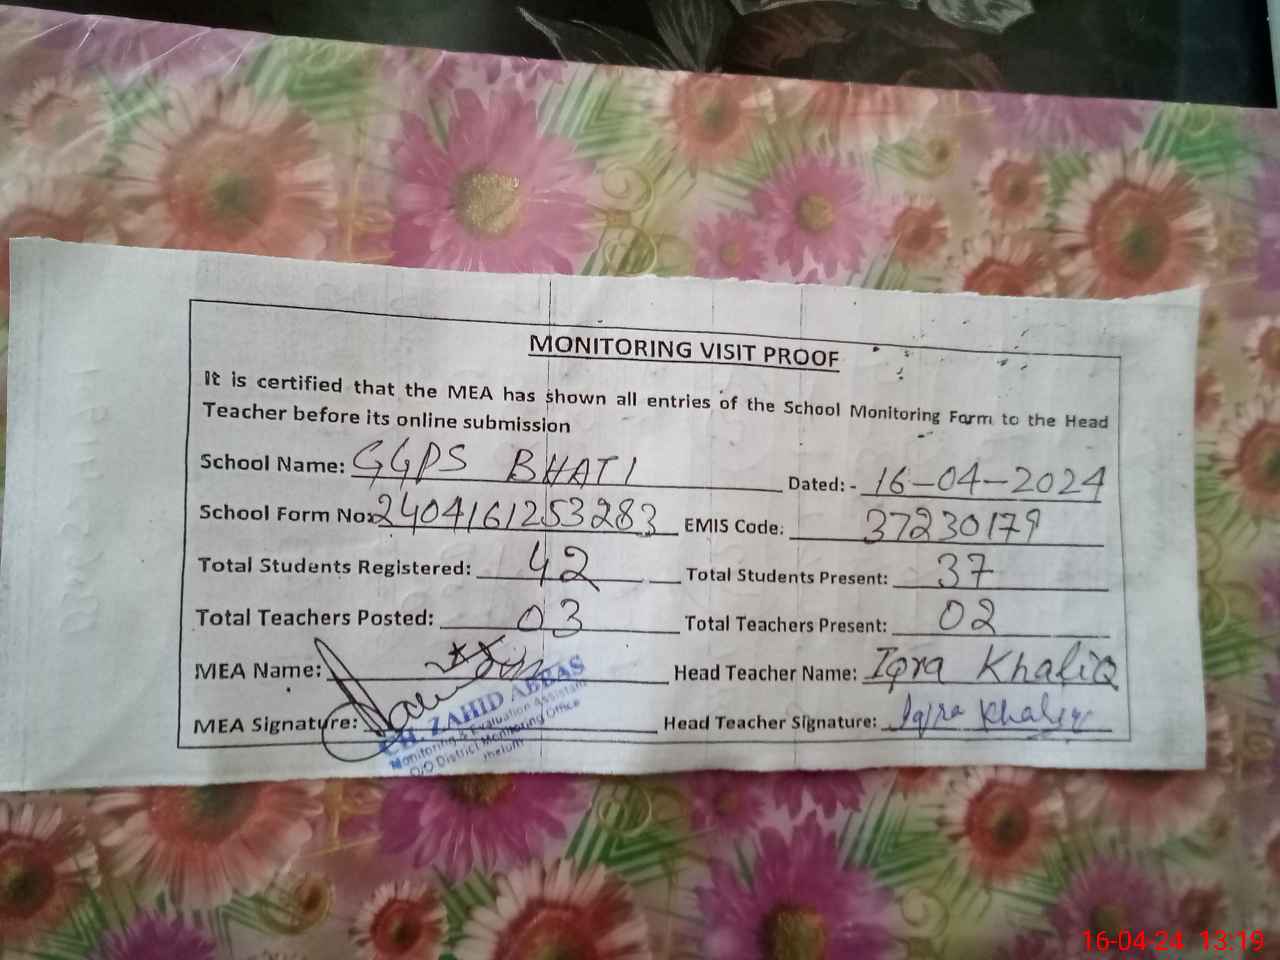 MONITORING VISIT PROOF
It is certified that the MEA has shown all entries of the School Monitoring Form to the Head
Teacher before its online submission
School Name: GGPS BHATI Dated: - 16-04-2024
School Form No: 2404161253283 EMIS Code: 37230179
Total Students Registered: 42 Total Students Present: 37
Total Teachers Posted: 03 Total Teachers Present: 02
MEA Name: Head Teacher Name: Iqra KhaliQ
MEA Signature: Head Teacher Signature: Iqra Khaliq
CH. ZAHID ABBAS
Monitoring & Evaluation Assistant
O/O District Monitoring Office
Jhelum
16-04-24 13:19